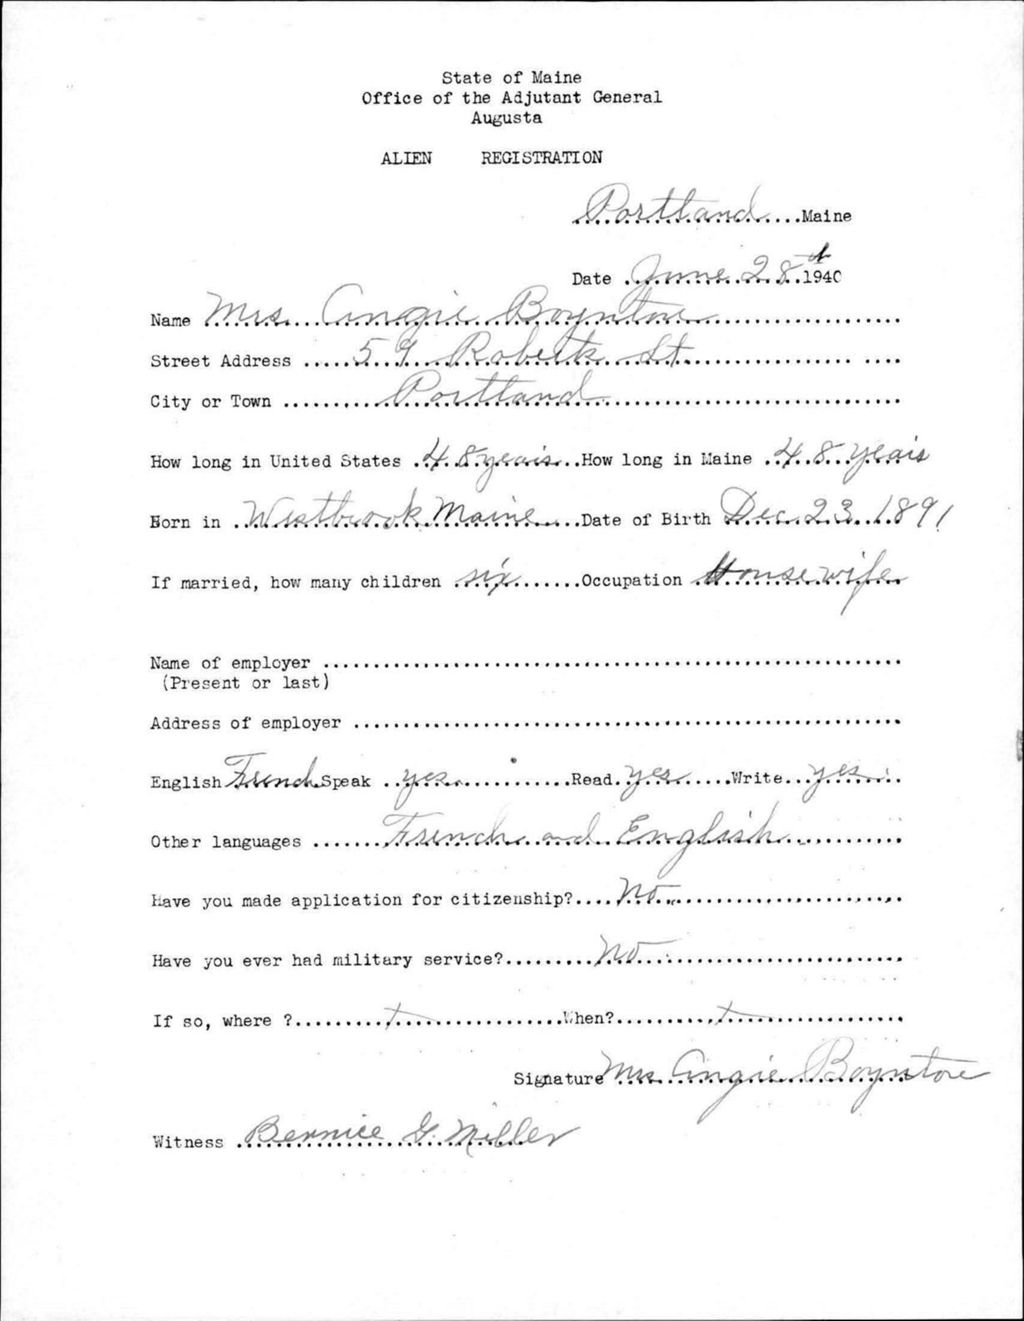 State of Maine
Office of the Adjutant General
Augusta
ALIEN REGISTRATION
Portland Maine
Date June 28th 1940
Name Mrs. Angie Boynton
Street Address 59 Roberts St
City or Town Portland
How long in United States 48 years How long in Maine 48 years
Born in Westbrook Maine Date of Birth Dec. 23. 1891
If married, how many children six Occupation Housewife
Name of employer
(Present or last)
Address of employer
English French Speak yes Read yes Write yes
Other languages French and English
Have you made application for citizenship? No
Have you ever had military service? No
If so, where ? When?
Signature Mrs. Angie Boynton
Witness Bernice G. Miller